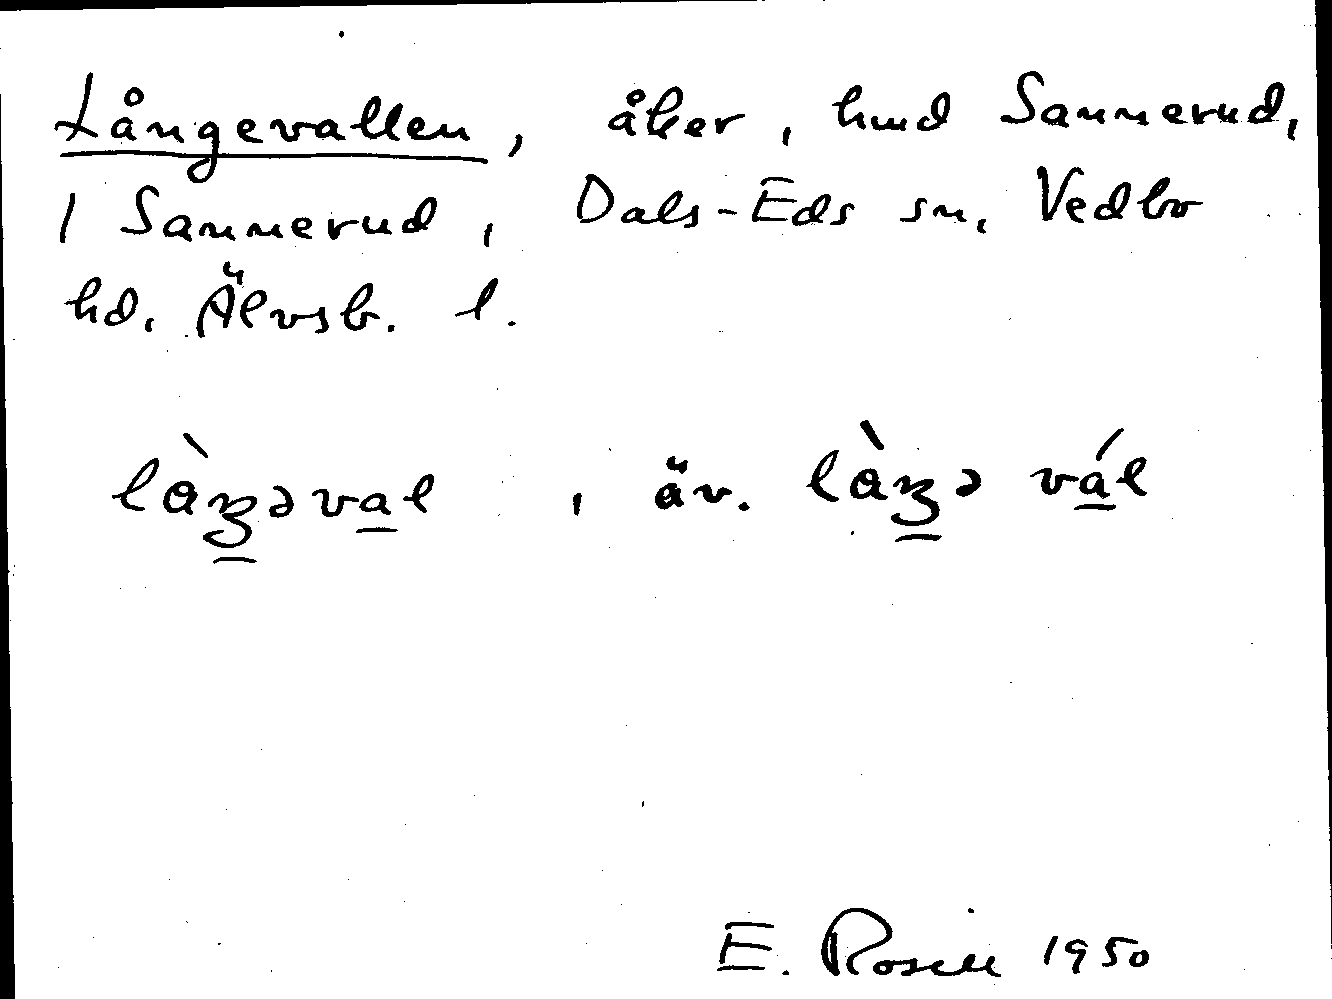 Långevallen, åker, hmd Sannerud,
1 Sannerud, Dals-Eds sn, Vedbo
hd. Älvsb. l.
làŋəval, äv. làŋə vál
E. Rosell 1950